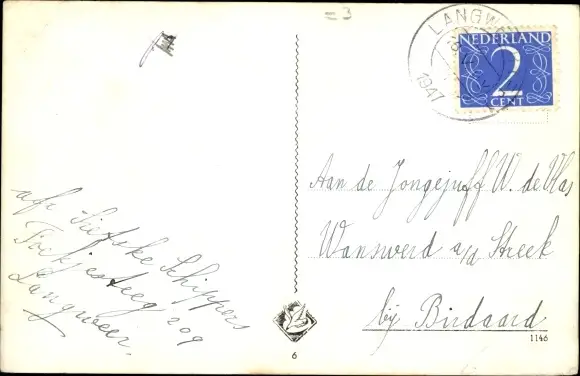 = 3
LANGW
1947
NEDERLAND
2
CENT
Aan de Jongejuff W. de Vlas
Wanswerd a/d Streek
bij Birdaard
afz Sietske Schippers
Fockjesteeg 209
Langweer.
1146
6